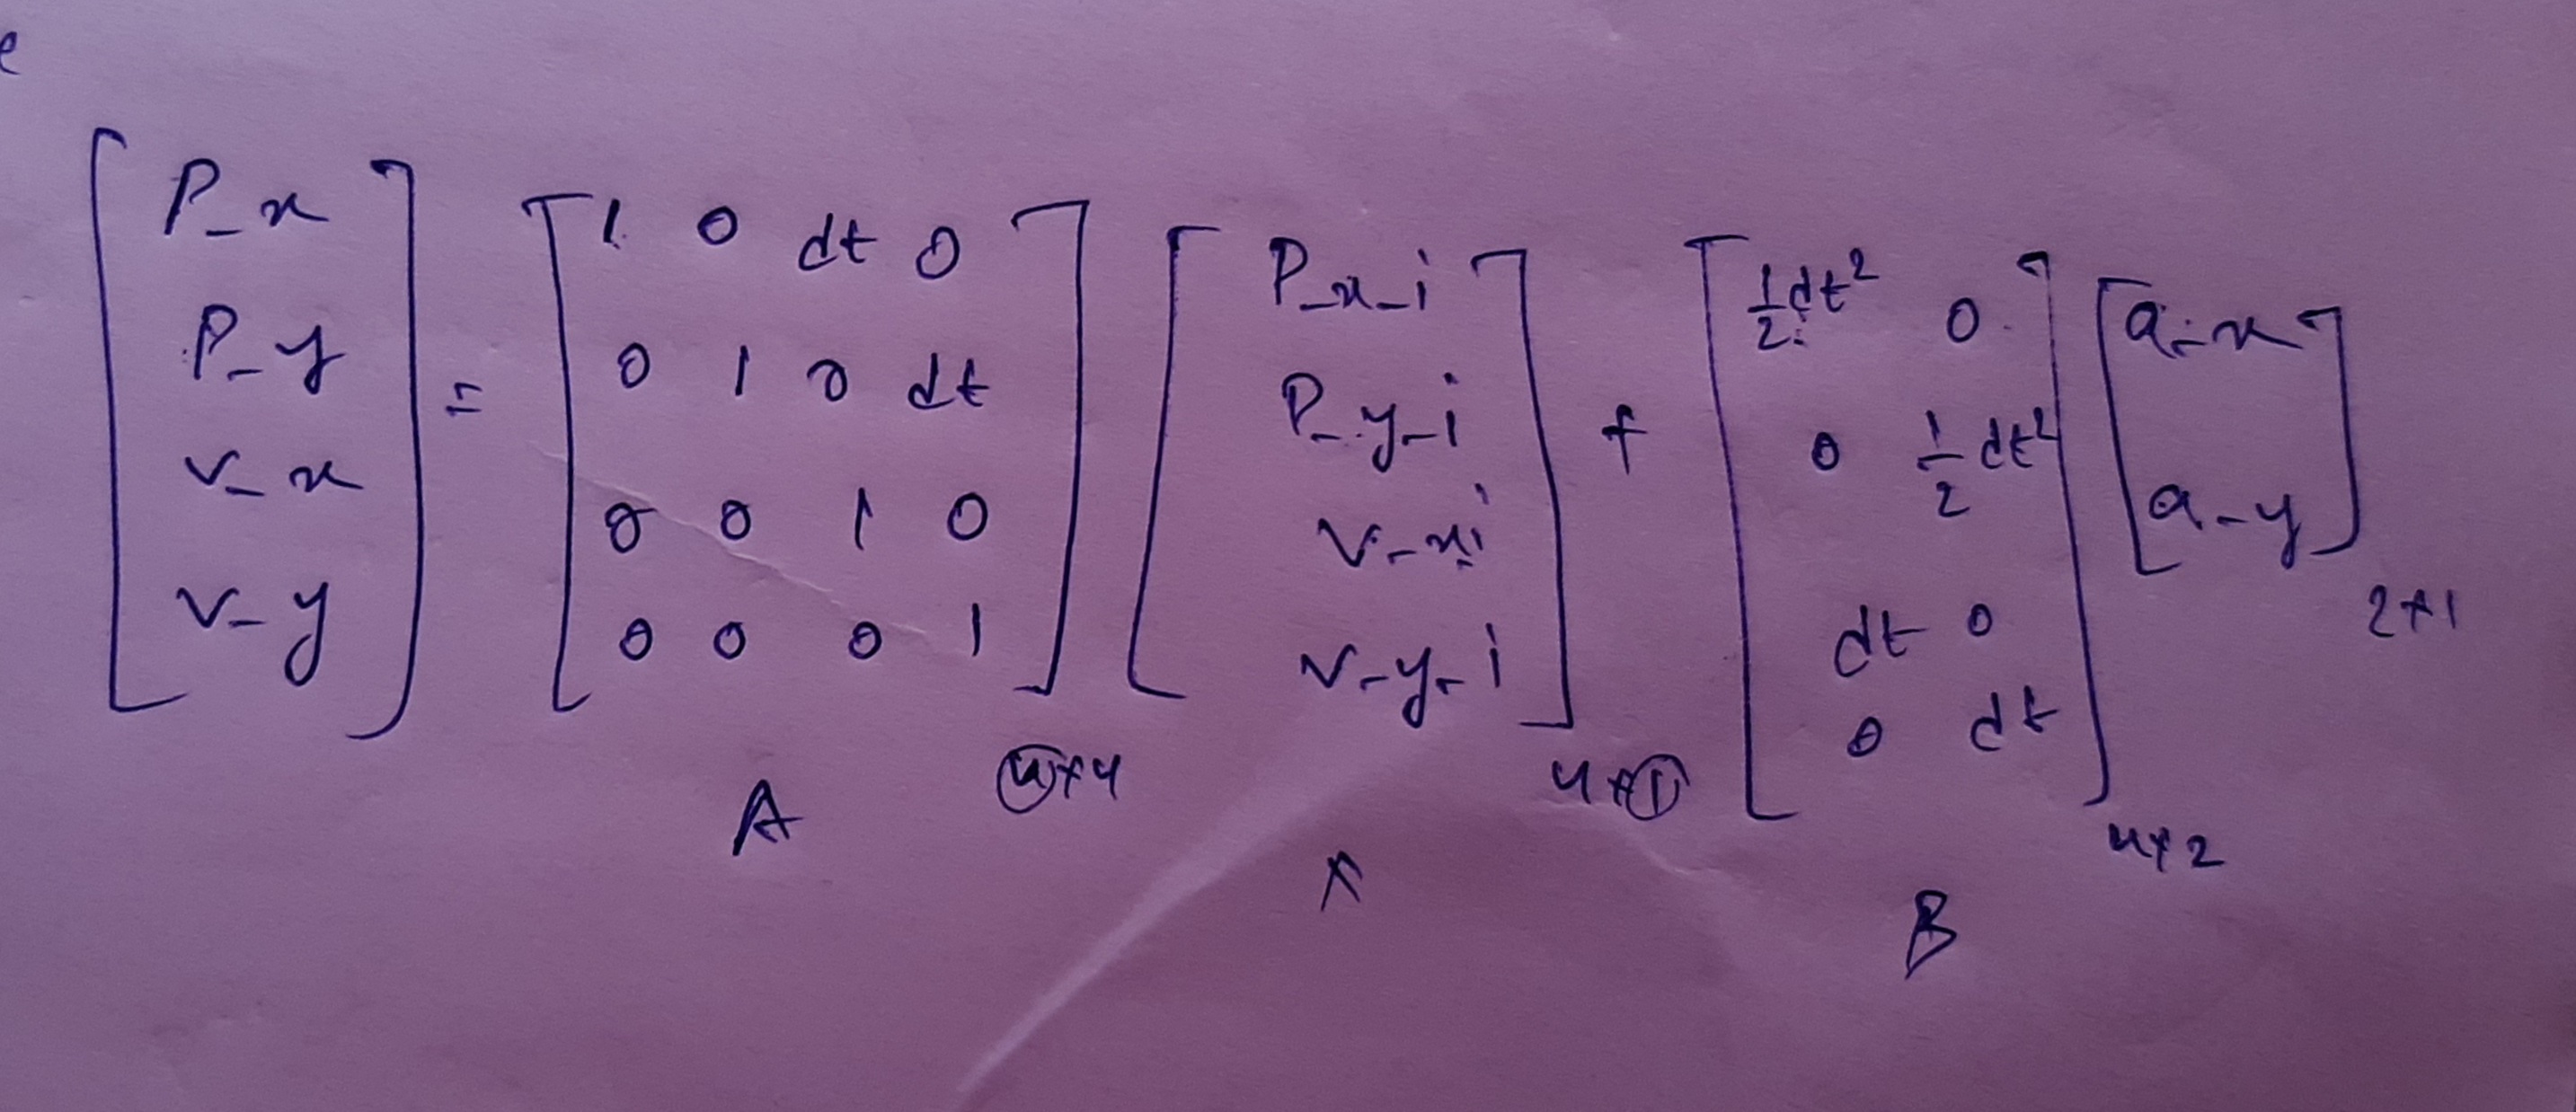 e
[P_x P_y v_x v_y] = [1 0 dt 0; 0 1 0 dt; 0 0 1 0; 0 0 0 1] 4×4 [P_x_i P_y_i v_xi v_y_i] 4×1 + [1/2 dt² 0; 0 1/2 dt²; dt 0; 0 dt] 4×2 [a_x a_y] 2×1
A X B